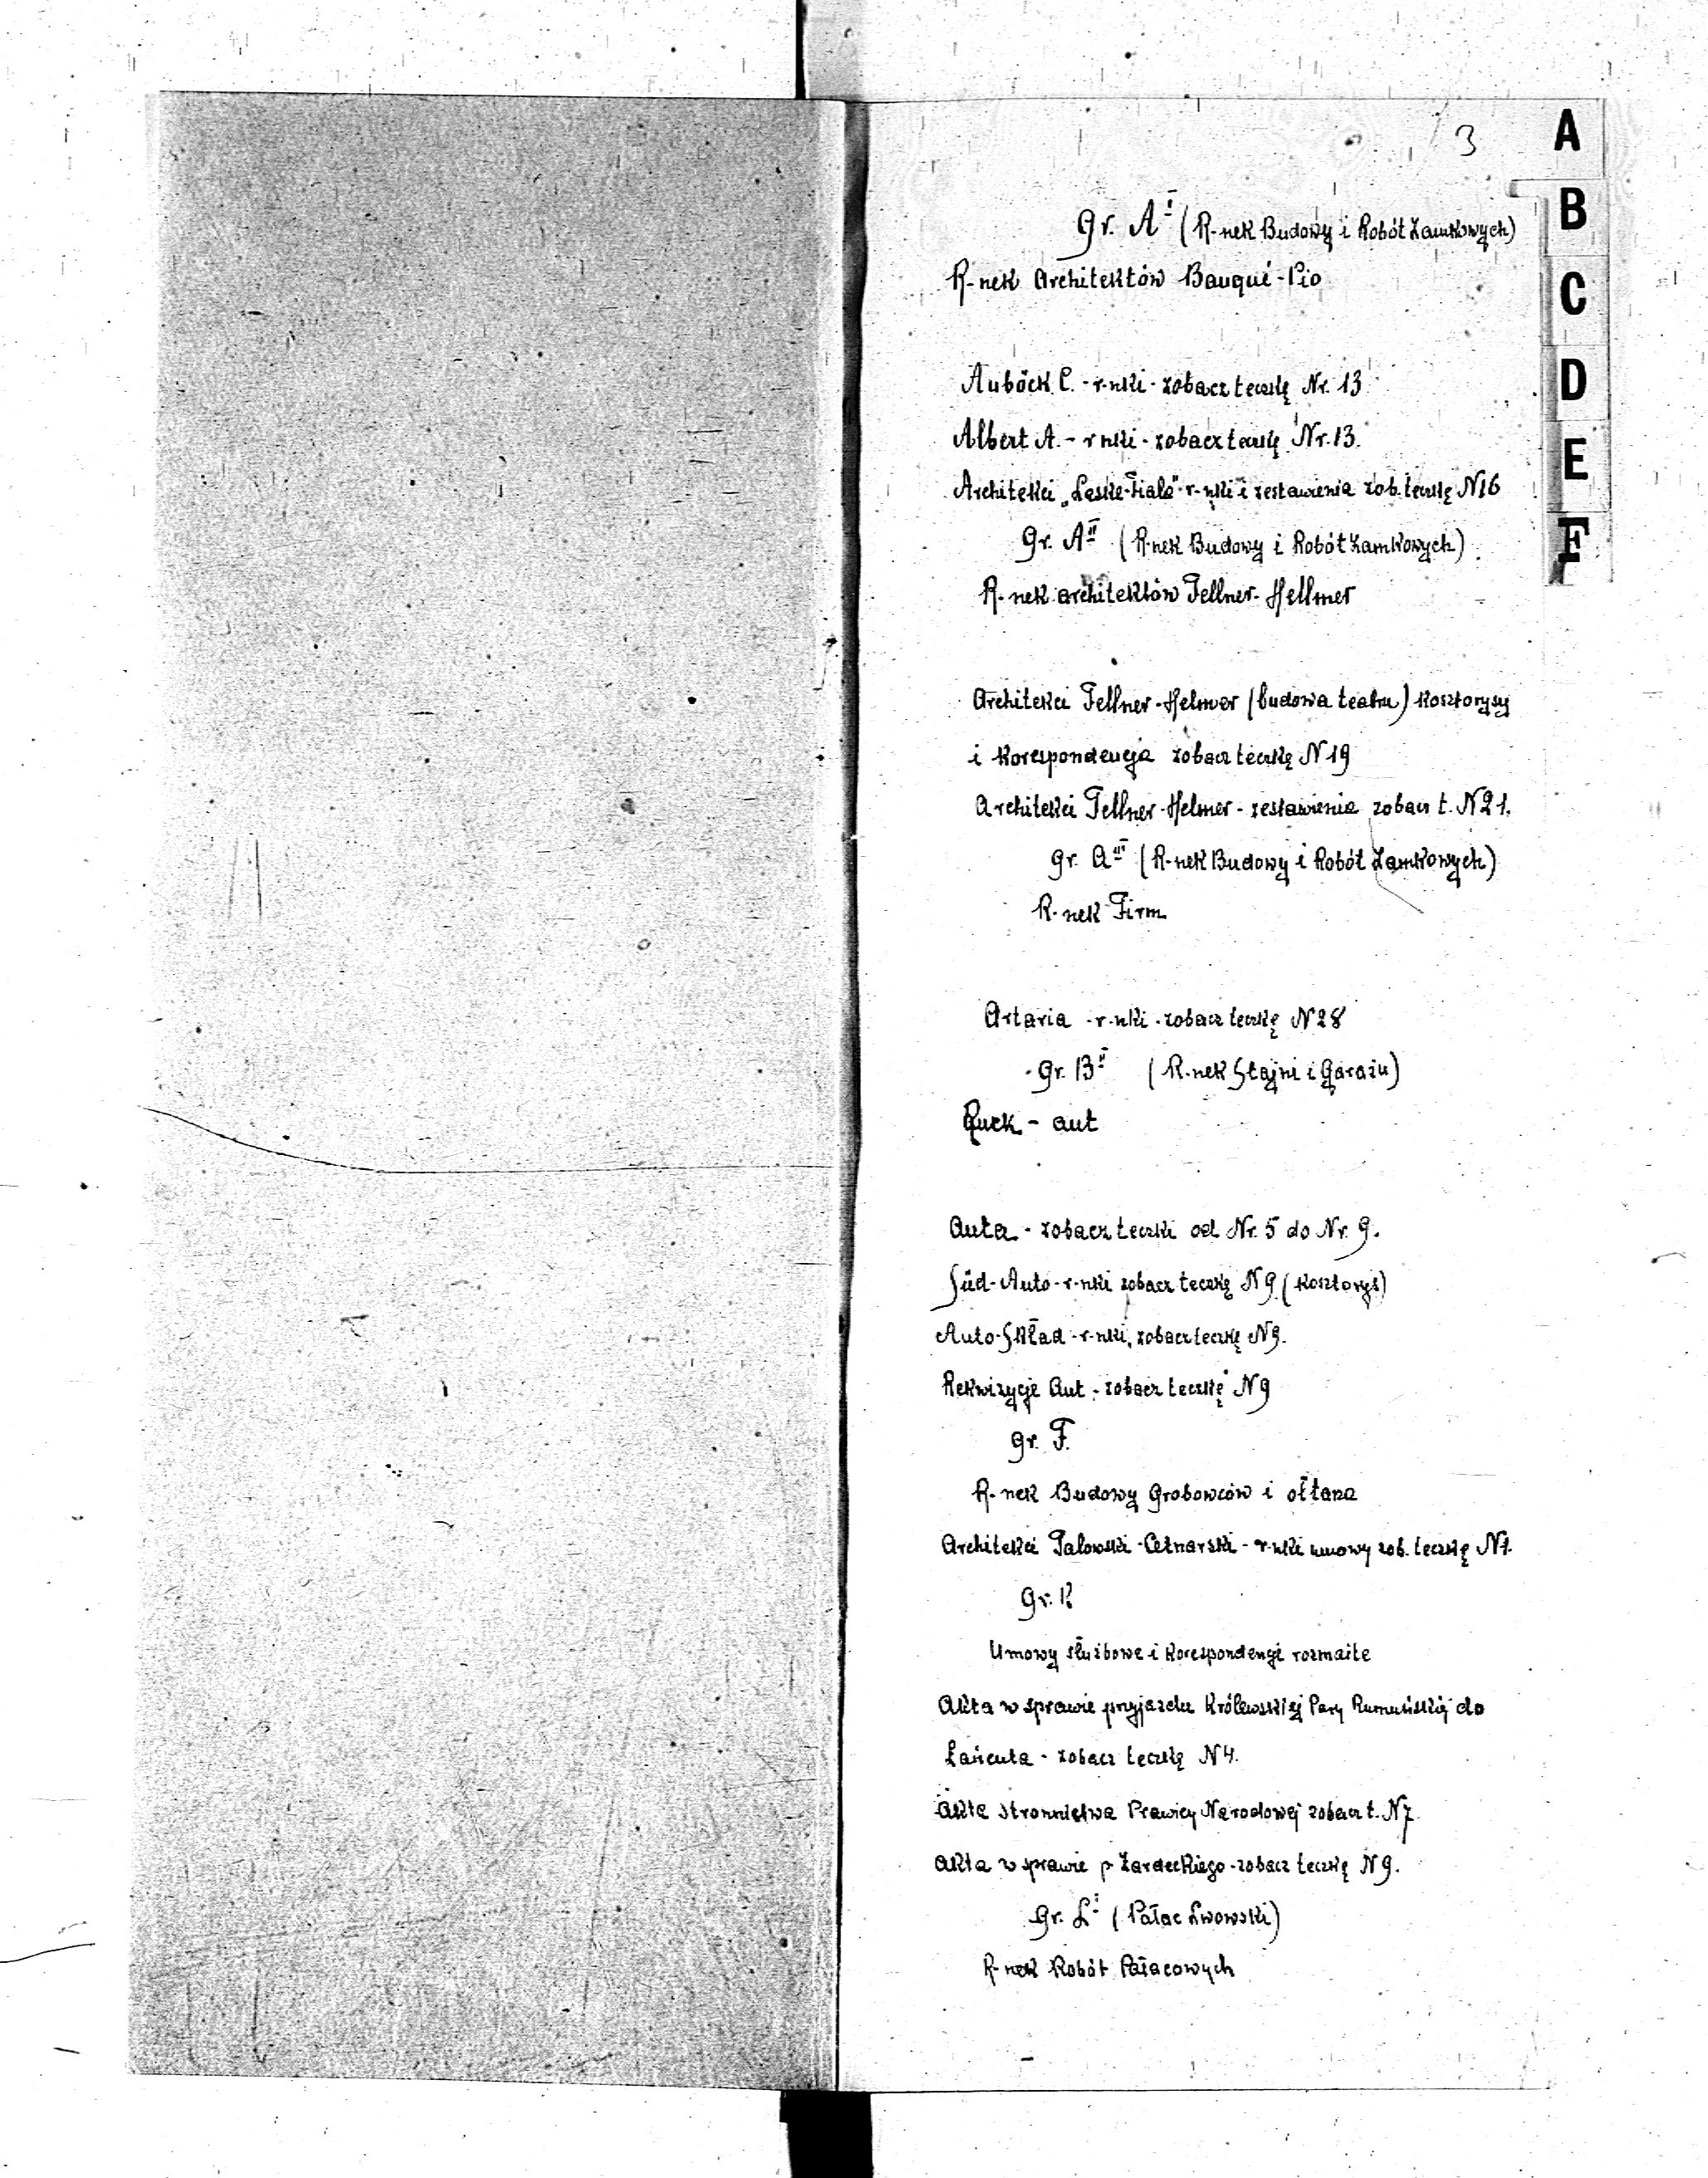 3
A
B
C
D
E
F
Gr. A I (R-nek Budowy i Robót Zamkowych)
R-nek Architektów Bauqué-Pio
Auböck C. - r-nki - zobacz teczkę Nr. 13
Albert A. - r-nki - zobacz teczkę Nr. 13.
Architekci „Laske-Fiala" - r-nki i zestawienia zob. teczkę N 16
Gr. A II (R-nek Budowy i Robót Zamkowych)
R-nek architektów Fellner-Hellmer
Architekci Fellner-Helmer (budowa teatru) kosztorysy
i korespondencja zobacz teczkę N 19
Architekci Fellner-Helmer - zestawienia zobacz t. N 21.
gr. A III (R-nek Budowy i Robót Zamkowych)
R-nek Firm
Artaria - r-nki - zobacz teczkę N 28
Gr. B II (R-nek Stajni i Garażu)
- aut
Auta - zobacz teczki od Nr. 5 do Nr. 9.
Süd-Auto - r-nki zobacz teczkę N 9 (kosztorys)
Auto-Skład - r-nki, zobacz teczkę N 9.
Rekwizycje Aut - zobacz teczkę N 9
gr. F.
R-nek Budowy Grobowców i ołtarza
Architekci Talowski - Cetnarski - r-nki umowy zob. teczkę N 1.
Gr. K
Umowy służbowe i korespondencje rozmaite
Akta w sprawie przyjazdu Królewskiej Pary Rumuńskiej do
Łańcuta - zobacz teczkę N 4.
Akta Stronnictwa Prawicy Narodowej zobacz t. N 7
Akta w sprawie p Zardeckiego - zobacz teczkę N 9.
Gr. L I (Pałac Lwowski)
R-nek Robót Pałacowych